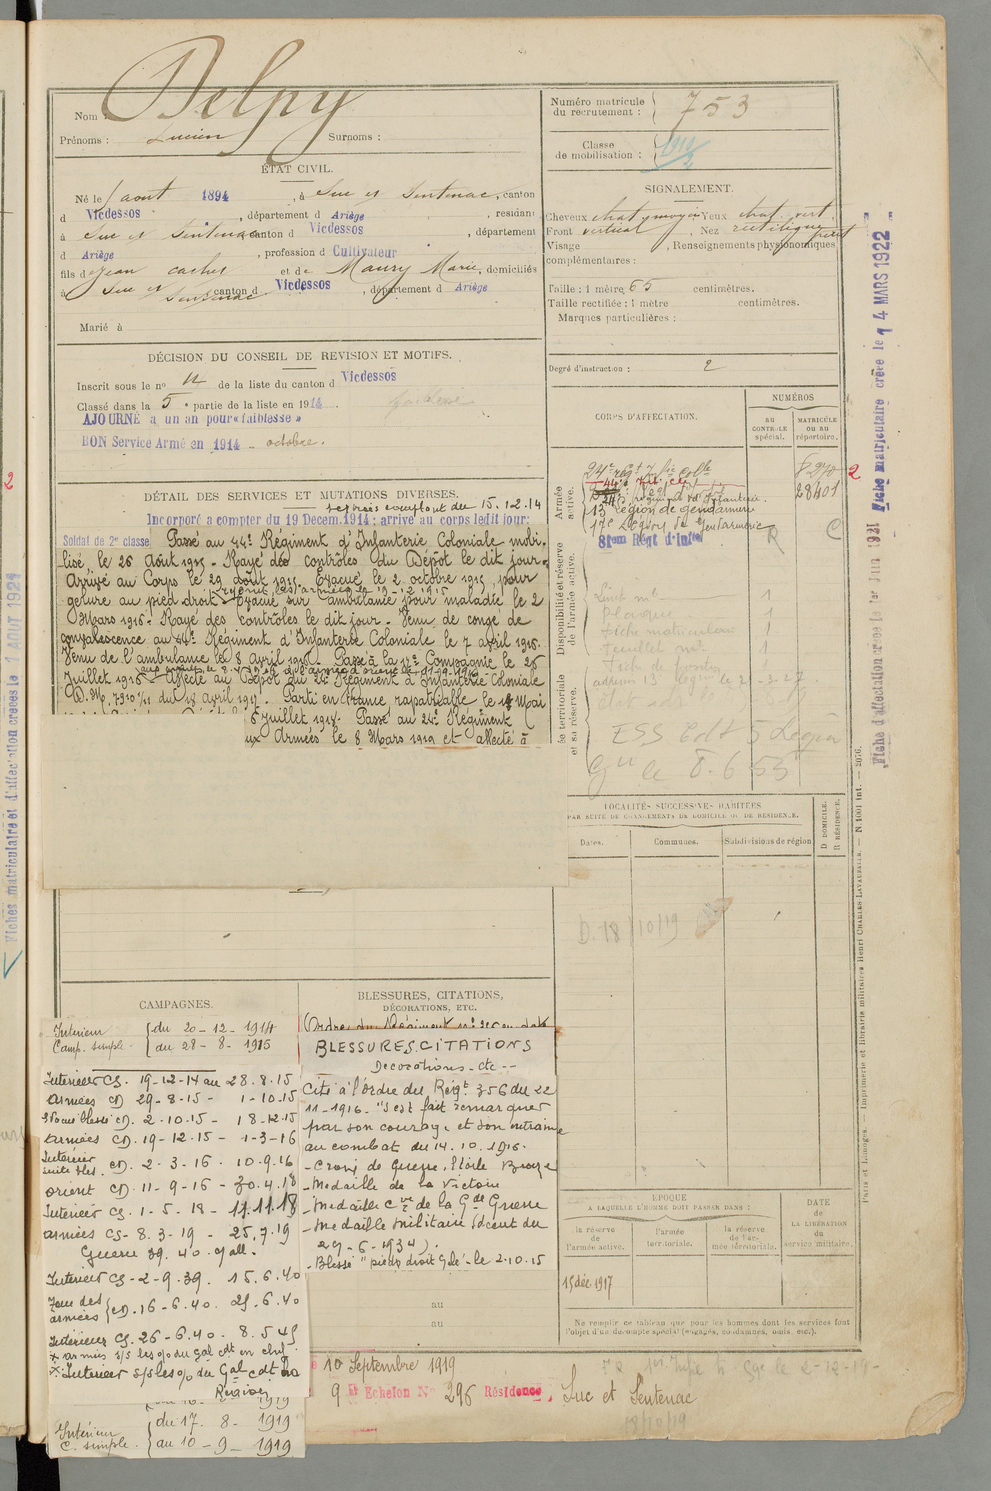 Nom : Delpy
Prénoms : Lucien Surnoms :
ÉTAT CIVIL.
Né le 1 aout 1894, à Suc et Sentenac, canton
d Vicdessos, département d Ariège, résidant
à Suc et Sentenac canton d Vicdessos, département
d Ariège, profession d Cultivateur
fils de Jean et de Maury Marie, domiciliés
à Suc et Sentenac canton d Vicdessos, département d Ariège
Marié à
DÉCISION DU CONSEIL DE REVISION ET MOTIFS.
Inscrit sous le n° de la liste du canton d Vicdessos
Classé dans la 5e partie de la liste en 1914.
faiblesse
AJOURNÉ à un an pour « faiblesse »
BON Service Armé en 1914 - octobre.
DÉTAIL DES SERVICES ET MUTATIONS DIVERSES.
services comptant du 15.12.14
Incorporé à compter du 19 Decem. 1914 ; arrivé au corps ledit jour ;
Soldat de 2e classe Passé au 44e Régiment d'Infanterie Coloniale mobi-
lisé, le 26 Août 1915. Rayé des contrôles du Dépôt le dit jour.
Arrivé au Corps le 29 août 1915. Evacué le 2 octobre 1915, pour
gelure au pied droit. Evacué sur ambulance pour maladie le 2
Mars 1916. Rayé des contrôles le dit jour. Venu de congé de
convalescence au 44e Régiment d'Infanterie Coloniale le 7 avril 1916.
Venu de l'ambulance le 8 Avril 1916. Passé à la 17e Compagnie le 25
Juillet 1916. Affecté au Dépôt du 24e Régiment d'Infanterie Coloniale
D.M. 7930 1/11 du 18 avril 1917. Parti en France, rapatriable le 18 Mai
6 juillet 1918. Passé au 24e Régiment
aux Armées le 8 Mars 1919 et affecté à
CAMPAGNES.
Intérieur du 20-12-1914
Camp. simple au 28-8-1915
Interieur CS. 19-12-14 au 28.8.15
Armées CD 29-8-15 - 1-10-15
Evacué blessé CD. 2-10-15 - 18-12-15
Armées CD. 19-12-15 - 1-3-16
Intérieur suite bles. CD. 2-3-16 - 10.9.16
Orient CD. 11-9-16 - 30.4.18
Interieur CS. 1-5-18 - 11.11.18
armées CS- 8.3-19 - 25.7.19
Guerre 39.40. g all.
Interieur CS-2-9.39. 15.6.40
Zone des armées CD.16-6.40. 25.6.40
Intérieur CS. 26-6.40. 8.5.45
x armées s/s les o/ du Gal cdt en chef
x Interieur s/s les o/ du Gal cdt la
Région
du 17-8-1919
Intérieur
C. simple au 10-9-1919
BLESSURES, CITATIONS,
DÉCORATIONS, ETC.
BLESSURES.CITATIONS
Decorations - etc --
Cité à l'ordre du Régt 356 du 22
11-1916 - "s'est fait remarquer
par son courage et son entrain
au combat du 14.10.1916.
- Croix de Guerre, Etoile Bronze
- Medaille de la Victoire
- Medaille Cve de la Gde Guerre
- Medaille Militaire (décret du
29-6-1934).
- Blessé "pieds droit gelé" le 2.10.15
au
au
10 Septembre 1919
9 Echelon N° 296 Résidence, Suc et Sentenac
18/10/19
Numéro matricule
du recrutement : 753
Classe
de mobilisation :
SIGNALEMENT.
Cheveux chat. moyen Yeux chat. vert
Front vertical, Nez rectiligne petit
Visage, Renseignements physionomiques
complémentaires :
Taille : 1 mètre 65 centimètres.
Taille rectifiée : 1 mètre centimètres.
Marques particulières :
Degré d'instruction : 2
CORPS D'AFFECTATION.
NUMÉROS
AU CONTRÔLE spécial.
MATRICULE OU AU répertoire.
Armée active.
24e régt d'Infie colle
24e régiment d'Infanterie
13e Légion de gendarmerie
17e Légion de Gendarmerie
81em Régt d'Infie
28401
R C
Disponibilité et réserve de l'armée active.
Armée territoriale et sa réserve.
Livret mle 1
Plaque 1
Fiche matriculaire 1
Feuillet mle 1
ESS Cdt 5 Légion
Gie le 8.6.55
LOCALITÉS SUCCESSIVES HABITÉES
PAR SUITE DE CHANGEMENTS DE DOMICILE OU DE RÉSIDENCE.
Dates. Communes. Subdivisions de région
D DOMICILE. R RÉSIDENCE.
D. 18/10/19
ÉPOQUE
A LAQUELLE L'HOMME DOIT PASSER DANS :
la réserve de l'armée active.
l'armée territoriale.
la réserve de l'armée térritoriale.
DATE de LA LIBÉRATION du service militaire.
15 déc. 1917
Ne remplir ce tableau que pour les hommes dont les services font
l'objet d'un décompte spécial (engagés, condamnés, omis, etc.).
Paris et Limoges. — Imprimerie et librairie militaires Henri CHARLES-LAVAUZELLE. — N. 1001 int. — 2076.
Fiche matriculaire créée le 14 MARS 1922
Fiche d'affectation créée le 1er Juin 1931
Fiches matriculaire et d'affectation créées le 1 AOUT 1921
2
2